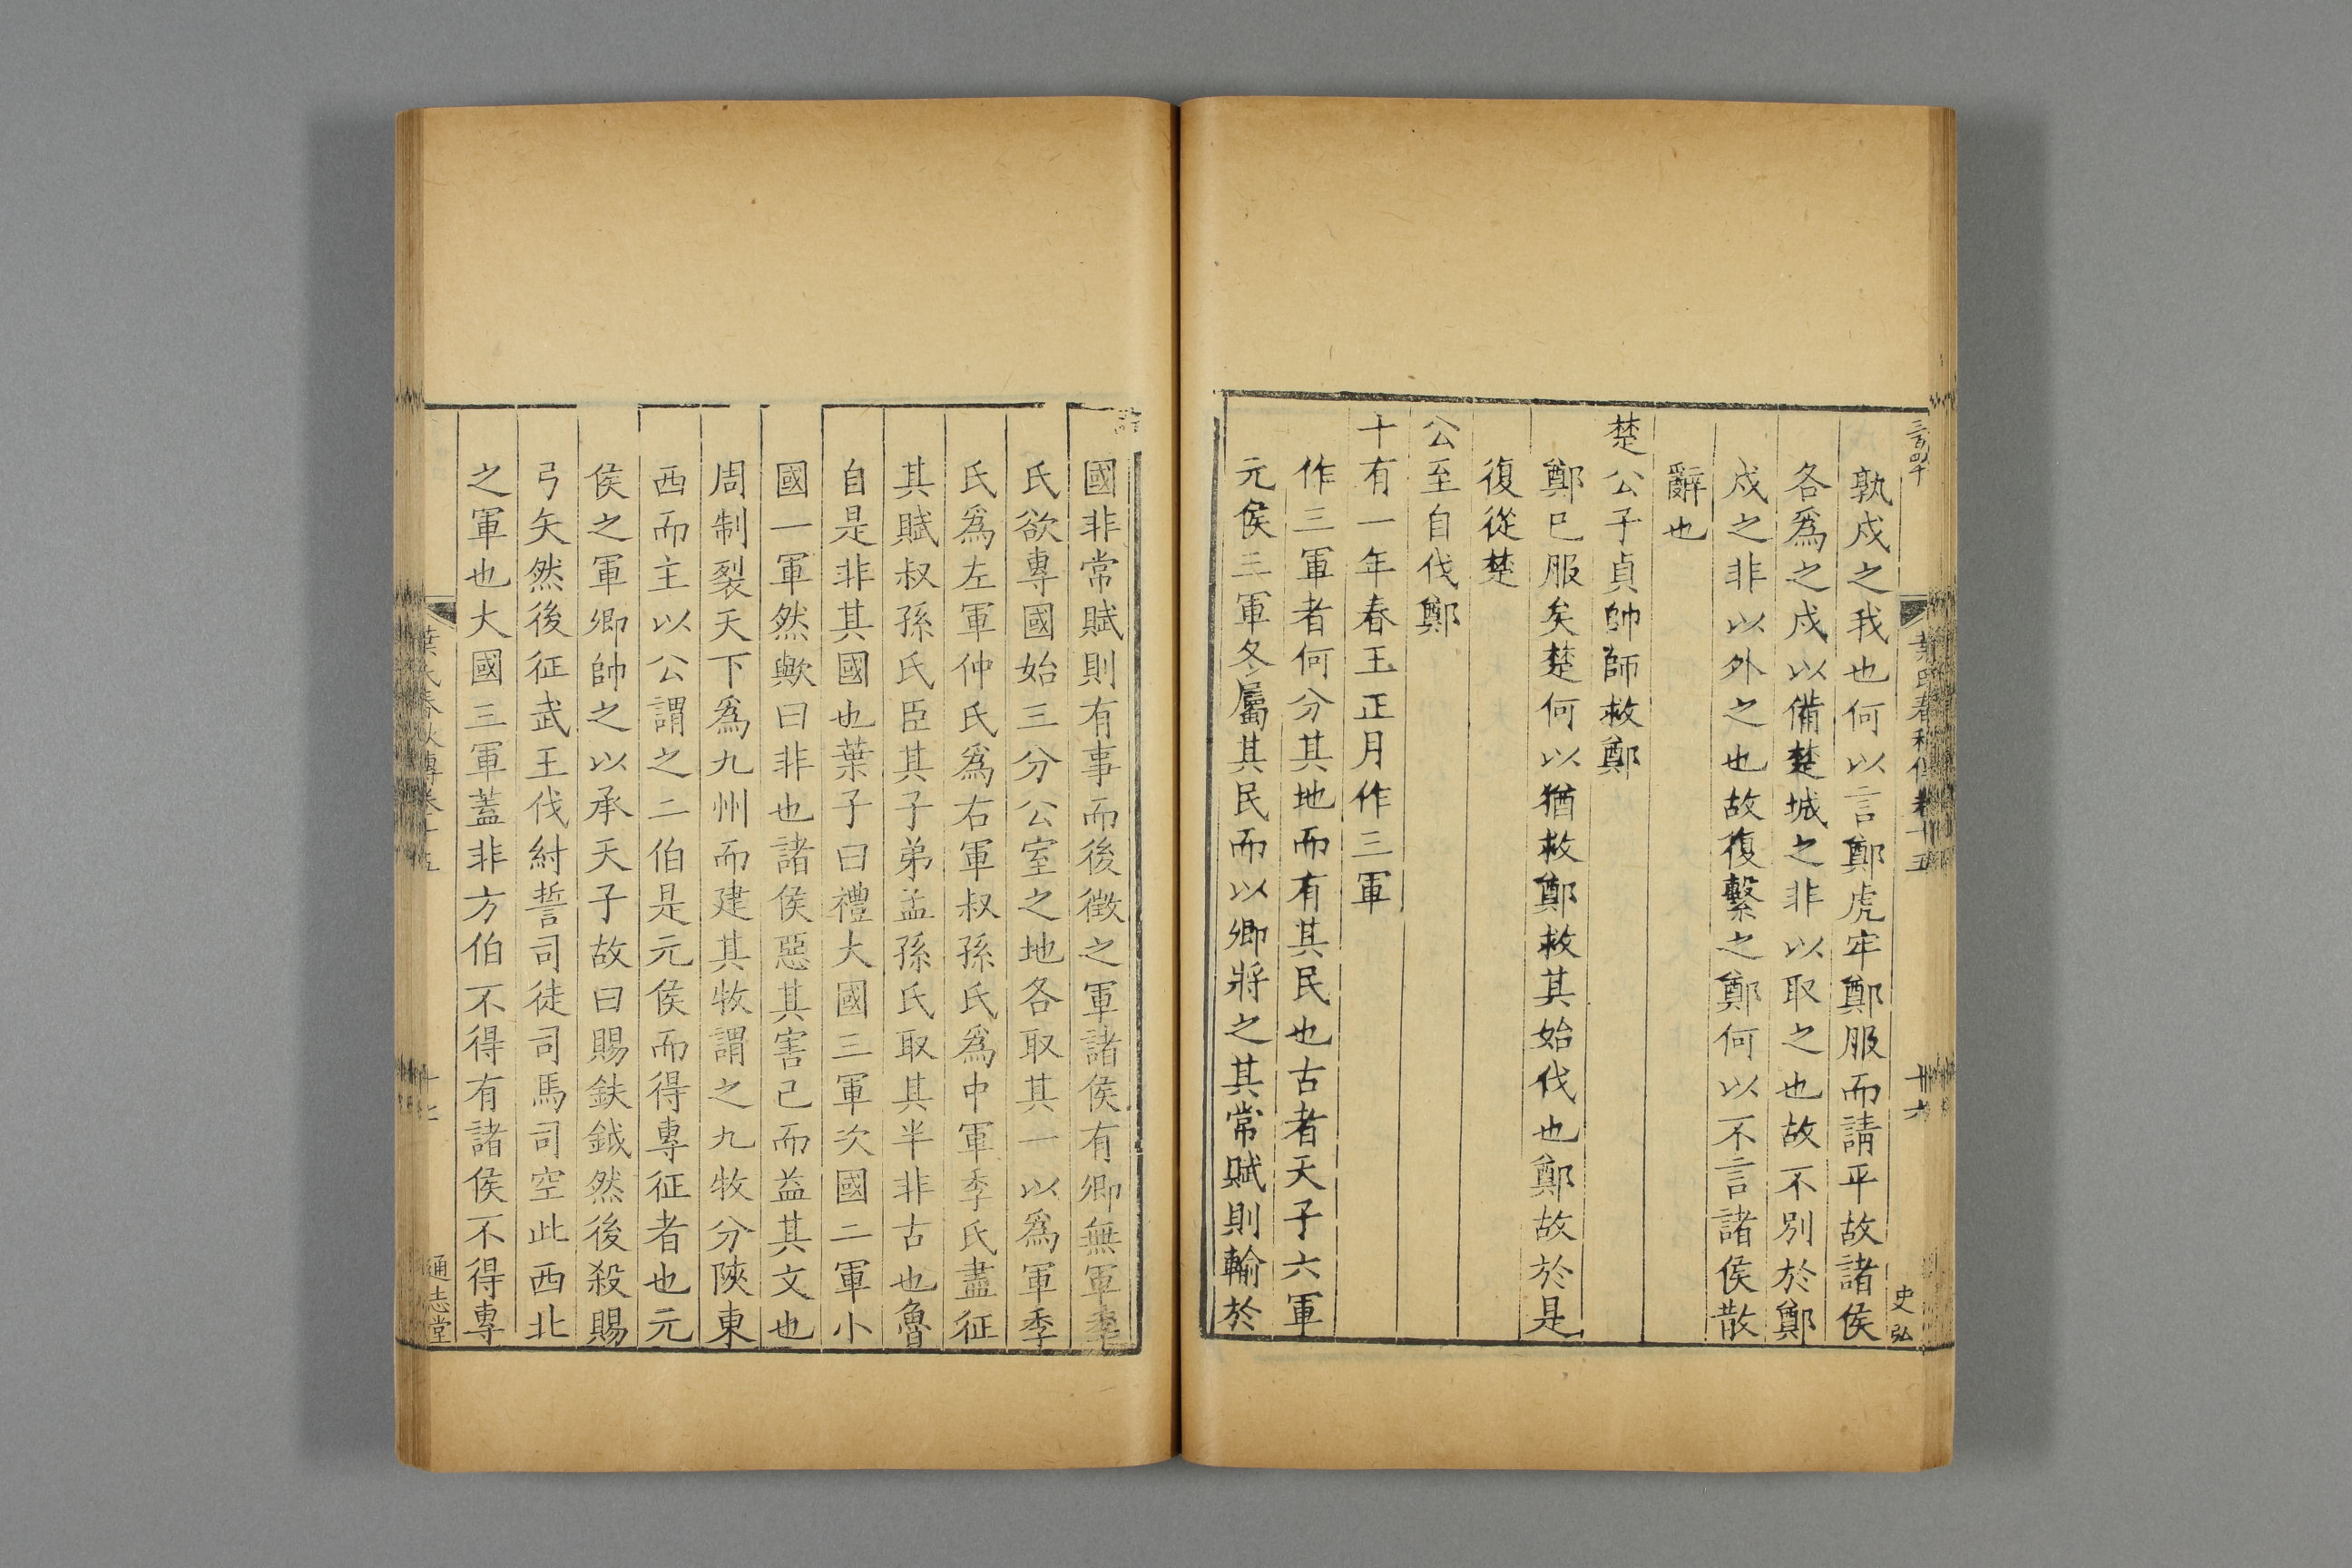 三百四十
葉氏春秋傳卷十五
十六
史弘
孰戍之我也何以言鄭虎牢鄭服而請平故諸侯
各爲之戍以備楚城之非以取之也故不別於鄭
戍之非以外之也故復繫之鄭何以不言諸侯散
辭也
楚公子貞帥師救鄭
鄭已服矣楚何以猶救鄭救其始伐也鄭故於是
復從楚
公至自伐鄭
十有一年春王正月作三軍
作三軍者何分其地而有其民也古者天子六軍
元侯三軍冬屬其民而以卿將之其常賦則輸於
國非常賦則有事而後徵之軍諸侯有卿無軍季
氏欲專國始三分公室之地各取其一以爲軍季
氏爲左軍仲氏爲右軍叔孫氏爲中軍季氏盡征
其賦叔孫氏臣其子弟孟孫氏取其半非古也魯
自是非其國也葉子曰禮大國三軍次國二軍小
國一軍然歟曰非也諸侯惡其害己而益其文也
周制裂天下爲九州而建其牧謂之九牧分陝東
西而主以公謂之二伯是元侯而得專征者也元
侯之軍卿帥之以承天子故曰賜鈇鉞然後殺賜
弓矢然後征武王伐紂誓司徒司馬司空此西北
之軍也大國三軍蓋非方伯不得有諸侯不得專
葉氏春秋傳卷十五
十七
通志堂